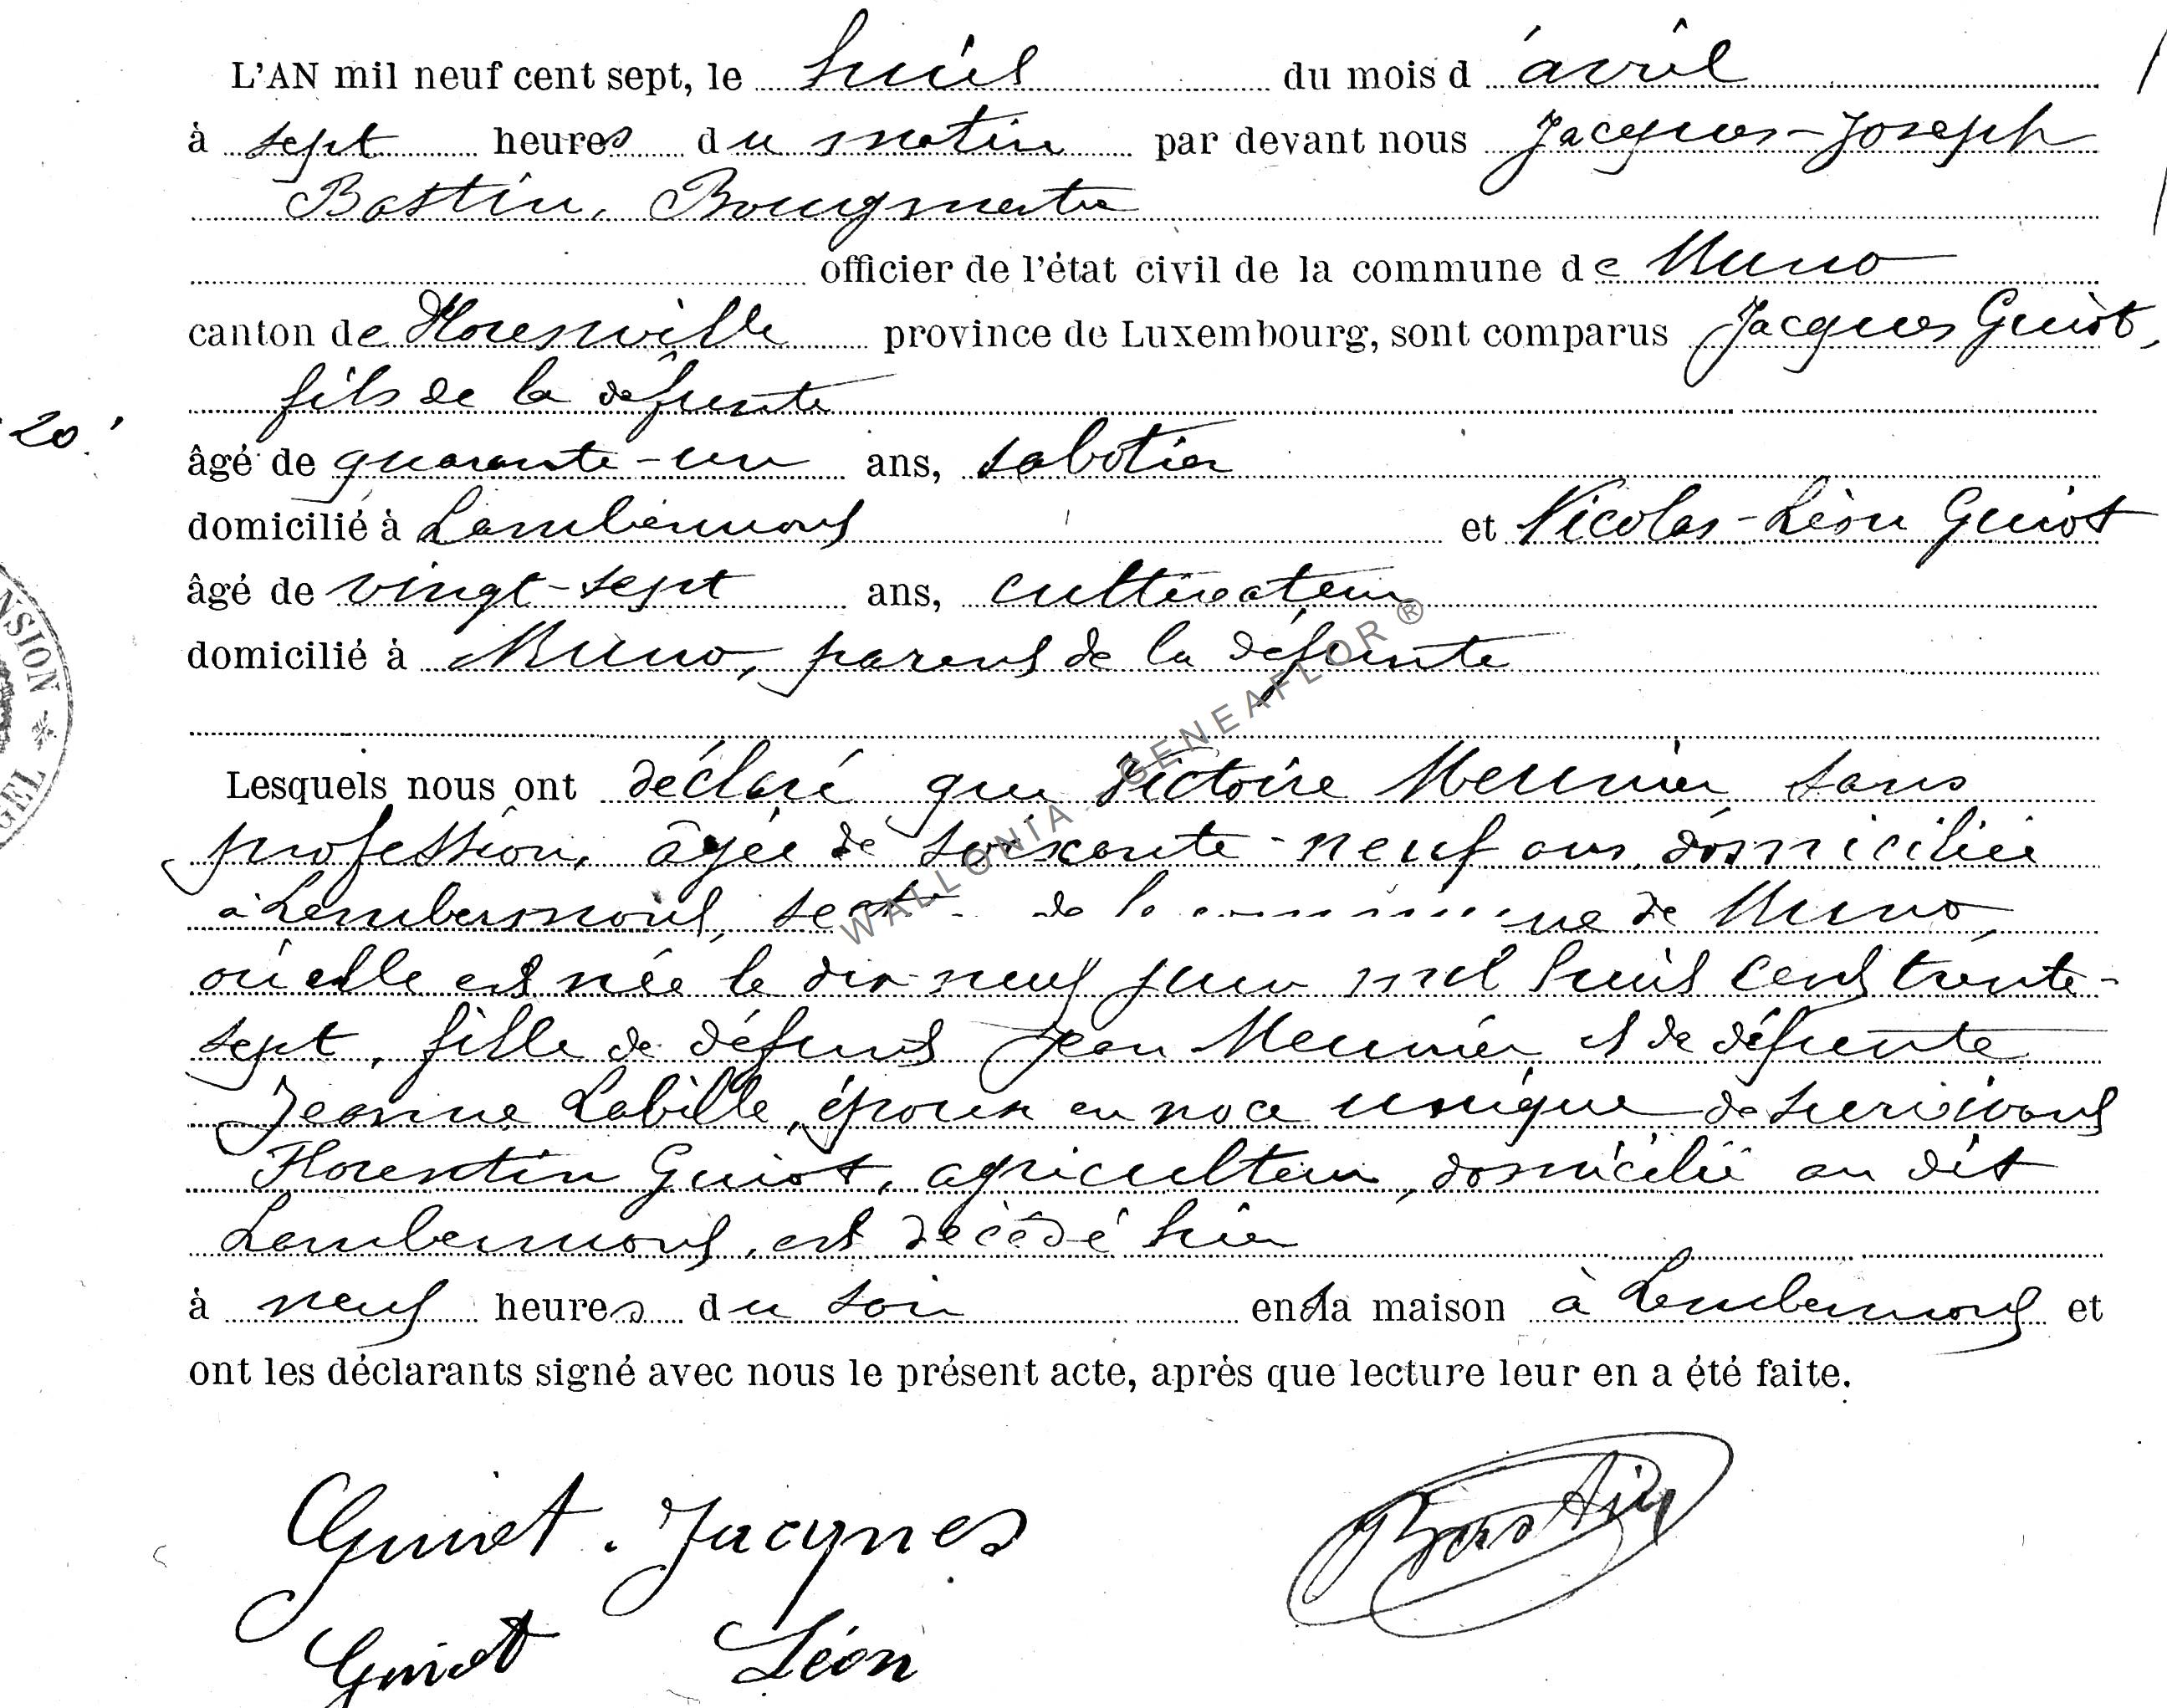 L'AN mil neuf cent sept, le huit du mois d'avril
à sept heures du matin par devant nous Jacques-Joseph
Bastin, Bourgmestre
officier de l'état civil de la commune de Muno
canton de Florenville province de Luxembourg, sont comparus Jacques Guiot,
fils de la défunte
20
âgé de quarante-un ans, sabotier
domicilié à Lambermont et Nicolas-Léon Guiot
âgé de vingt-sept ans, cultivateur
domicilié à Muno, parent de la défunte
NSION * GEL
WALLONIA - GENEAFLOR ®
Lesquels nous ont déclaré que Victoire Meunier sans
profession, âgée de soixante-neuf ans, domiciliée
à Lambermont, de la commune de Muno
où elle est née le dix-neuf juin mil huit cent trente-
sept, fille de défunt Jean Meunier et de défunte
Jeanne Labille, épouse en noce unique de survivant
Florentin Guiot, agriculteur, domicilié au dit
Lambermont, est décédé hier
à neuf heures du soir en sa maison à Lambermont et
ont les déclarants signé avec nous le présent acte, après que lecture leur en a été faite.
Guiot. Jacques
Bastin
Guiot Léon